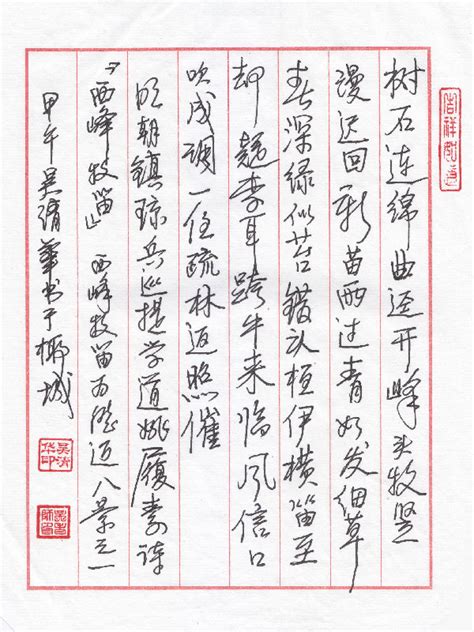 树石连绵曲迳开峰头牧竖
漫迟回新苗雨过青如发细草
春深绿似苔错认桓伊横笛至
却疑李耳跨牛来临风信口
吹成调一任疏林返照催
明朝镇琼兵巡提学道姚履素诗
《西峰牧笛》西峰牧笛为澄迈八景之一
甲午吴清华书于椰城
吉祥
吴清华印